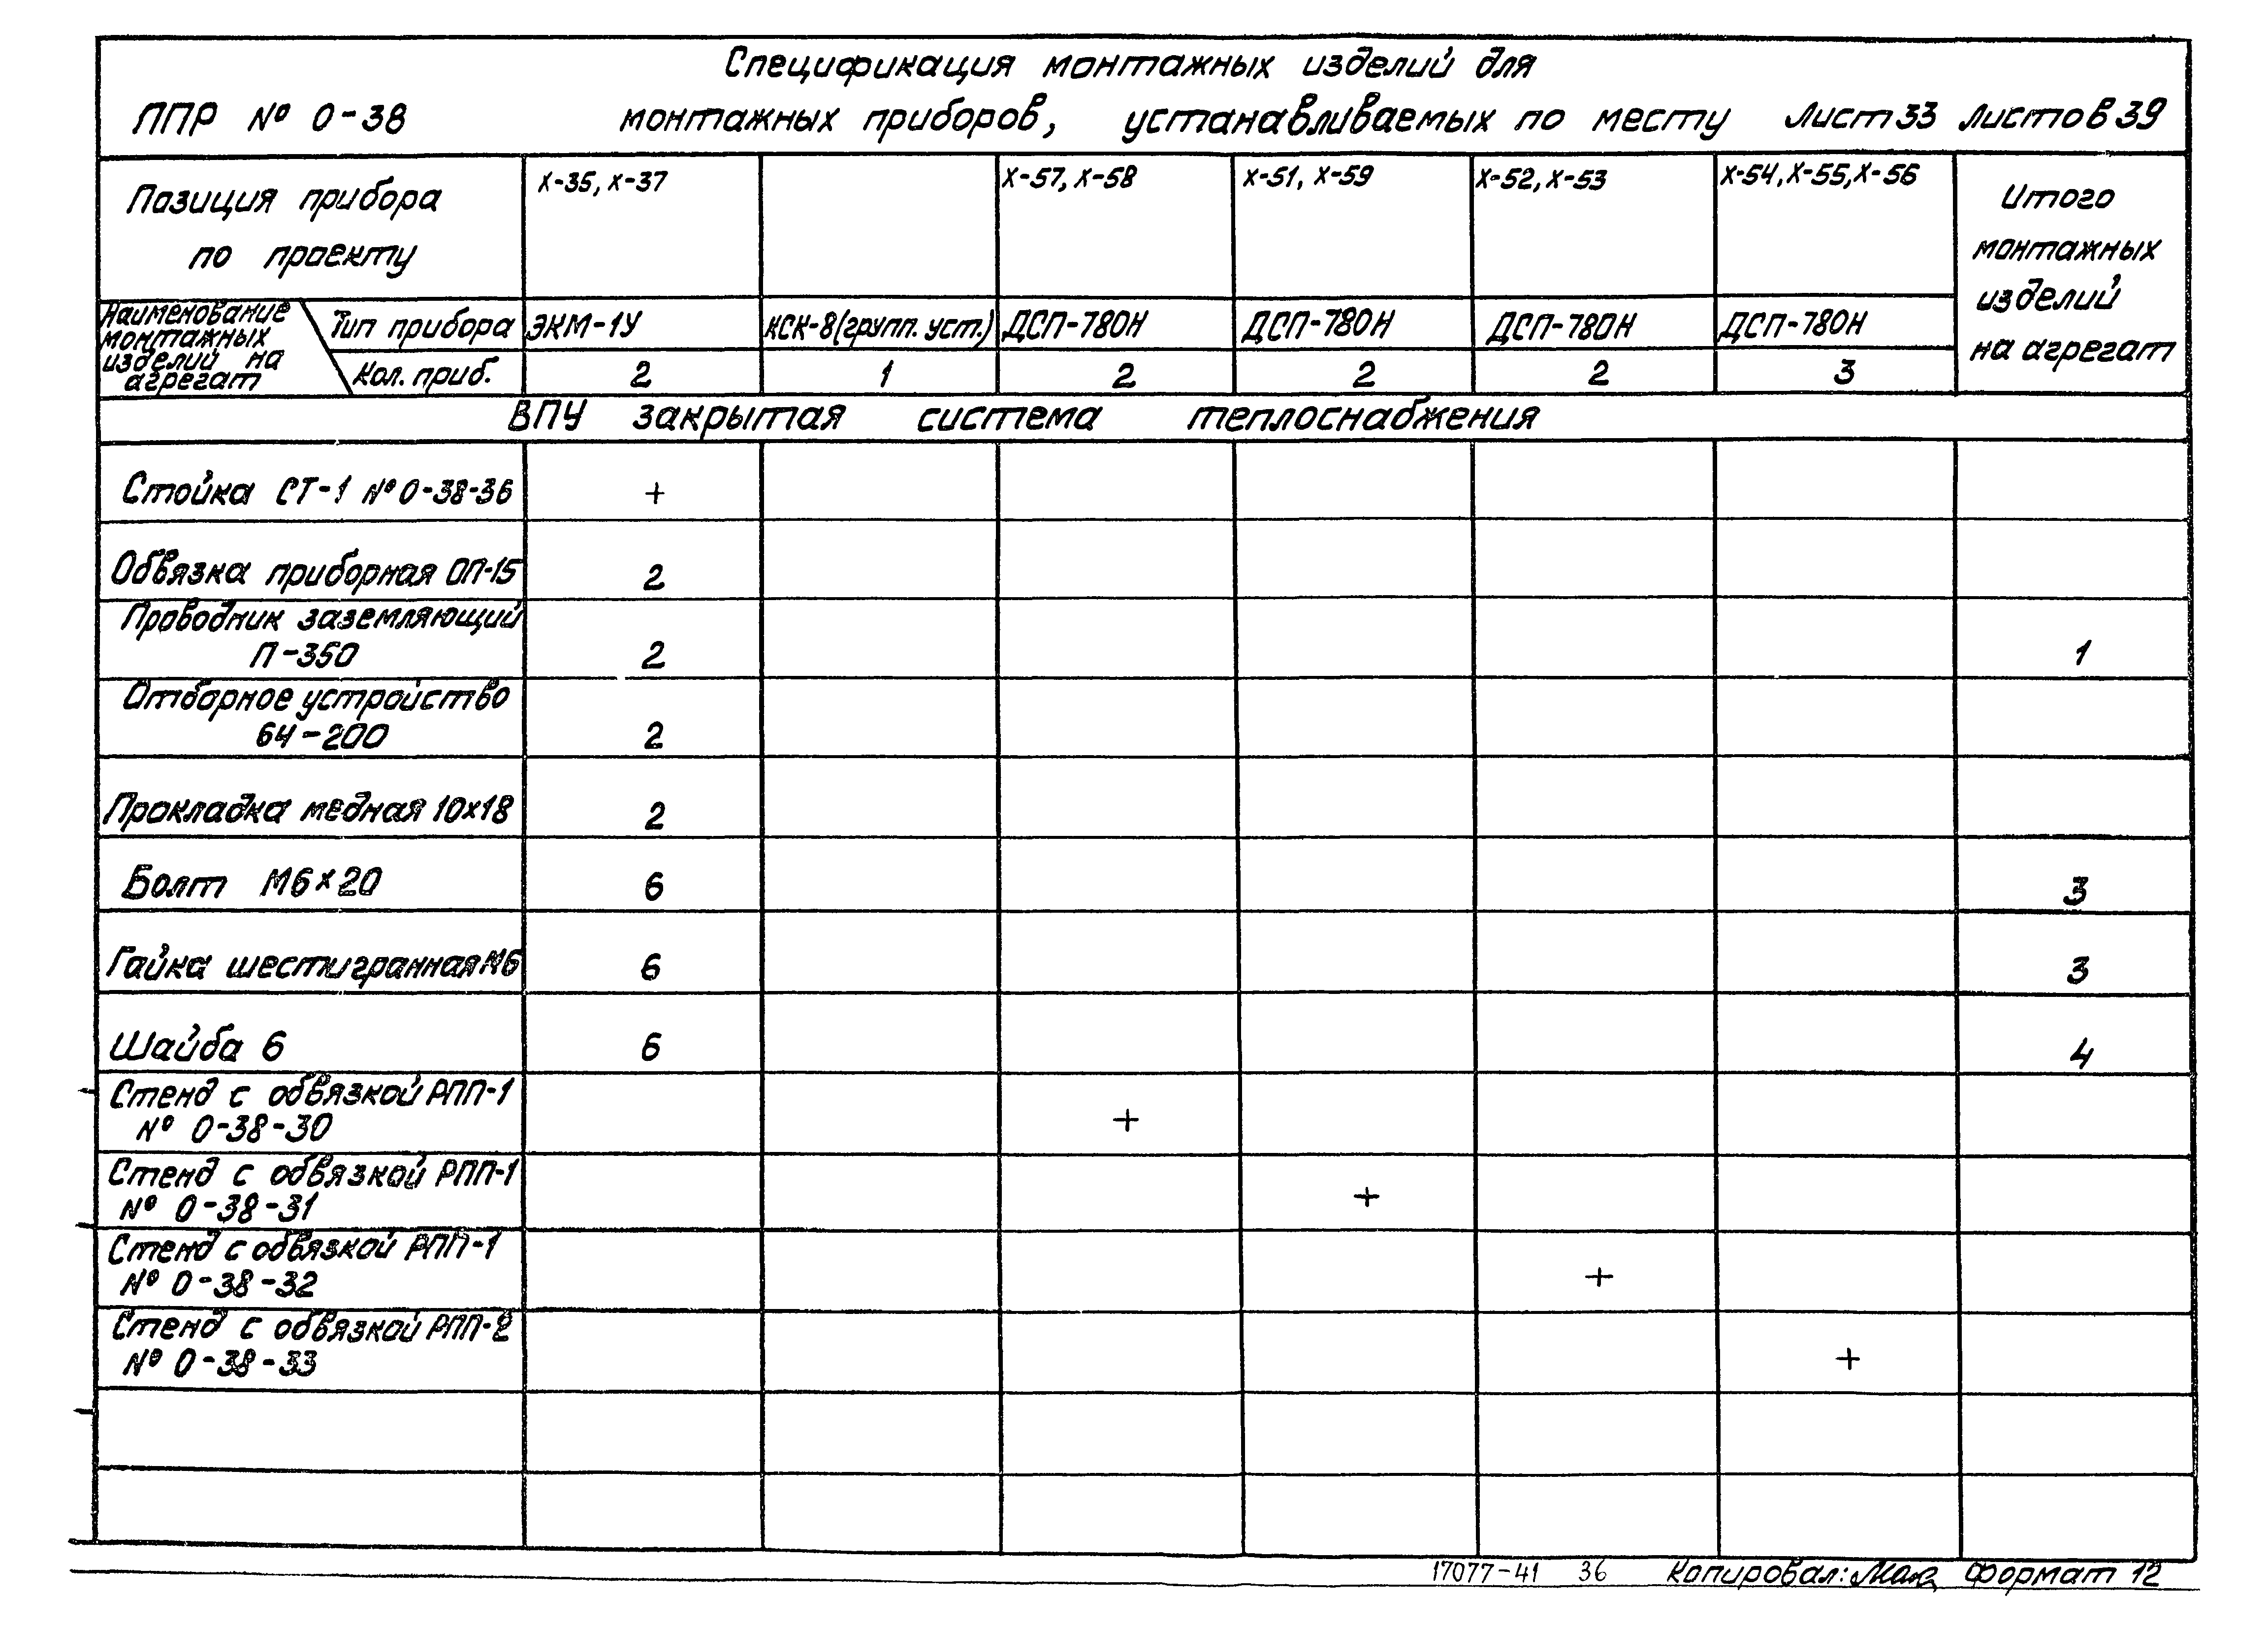 Спецификация монтажных изделий для
ППР № 0-38 монтажных приборов, устанавливаемых по месту Лист 33 Листов 39
Позиция прибора по проекту
Х-35, Х-37
Х-57, Х-58
Х-51, Х-59
Х-52, Х-53
Х-54, Х-55, Х-56
Итого
монтажных
изделий
на агрегат
Наименование
монтажных
изделий на
агрегат
Тип прибора ЭКМ-1У КСК-8(групп. уст.) ДСП-780Н ДСП-780Н ДСП-780Н ДСП-780Н
Кол. приб. 2 1 2 2 2 3
ВПУ закрытая система теплоснабжения
Стойка СТ-1 № 0-38-36 +
Обвязка приборная ОП-15 2
Проводник заземляющий
П-350 2 1
Отборное устройство
64-200 2
Прокладка медная 10х18 2
Болт М6х20 6 3
Гайка шестигранная М6 6 3
Шайба 6 6 4
Стенд с обвязкой РПП-1
№ 0-38-30 +
Стенд с обвязкой РПП-1
№ 0-38-31 +
Стенд с обвязкой РПП-1
№ 0-38-32 +
Стенд с обвязкой РПП-2
№ 0-38-33 +
17077-41 36 Копировал: Формат 12